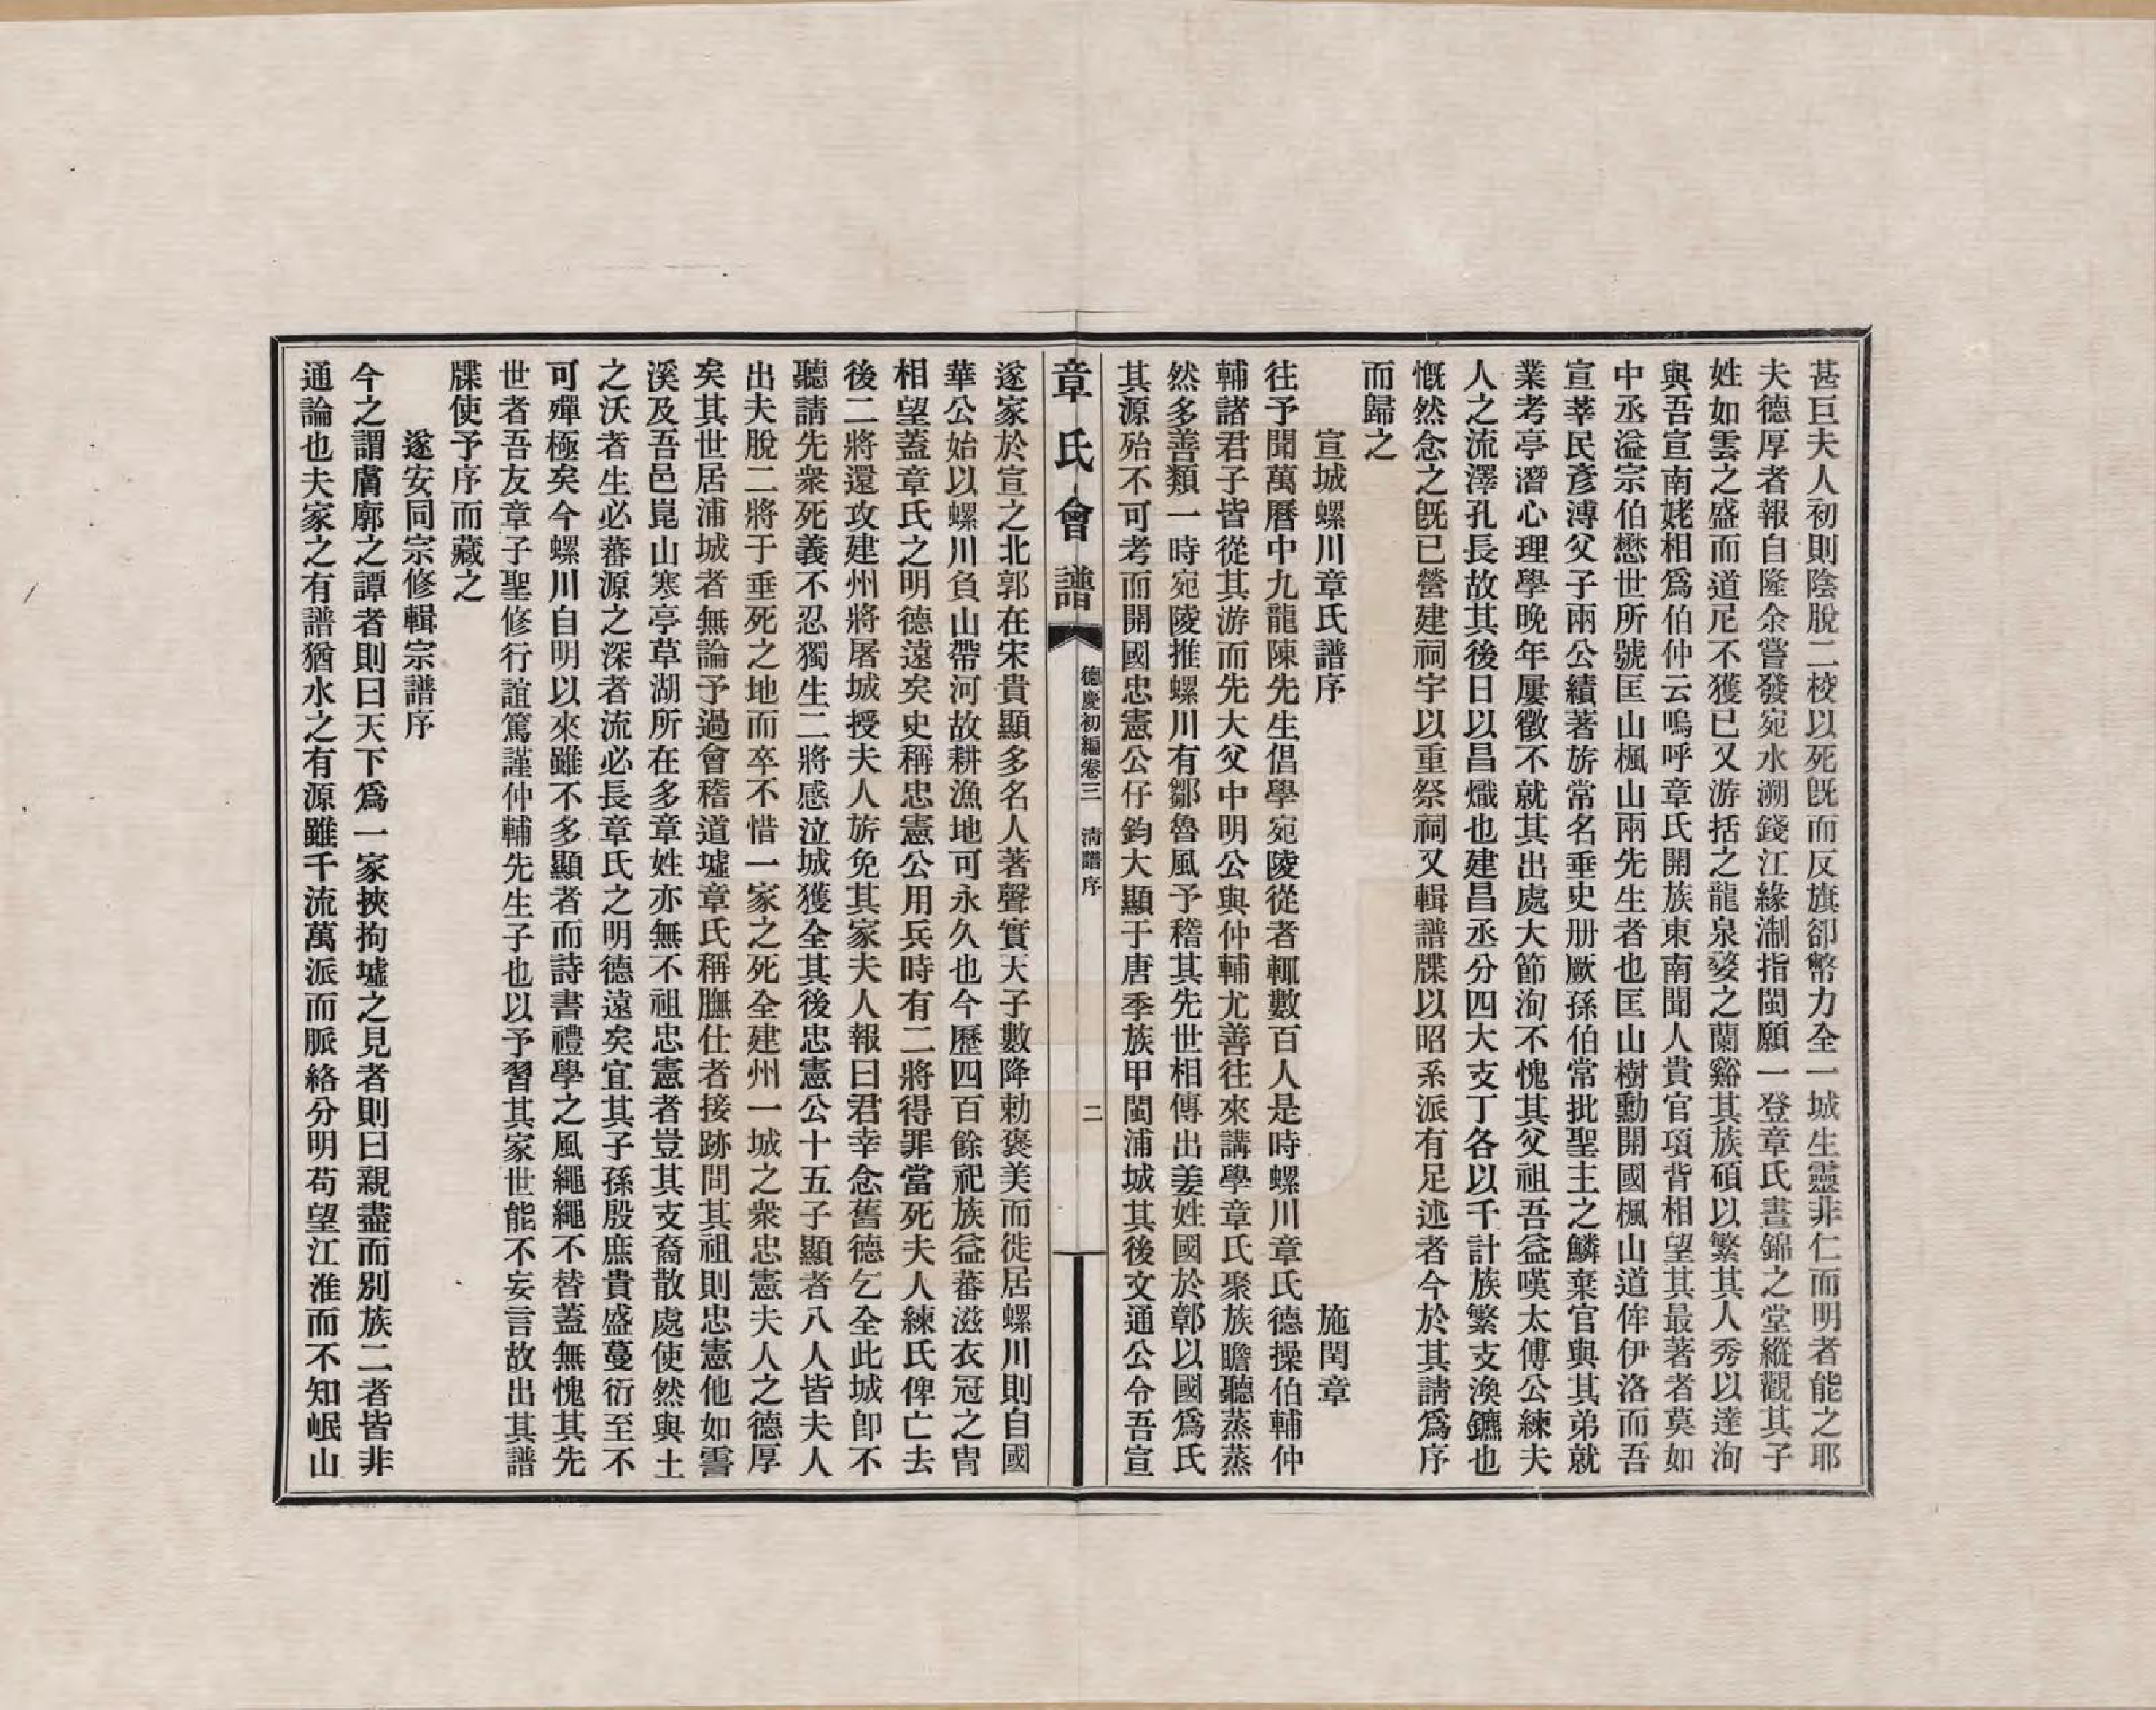 甚巨夫人初則陰脫二校以死旣而反旗卻幣力全一城生靈非仁而明者能之耶
夫德厚者報自隆余嘗發宛水溯錢江緣淛指閩願一登章氏晝錦之堂縱觀其子
姓如雲之盛而道尼不獲已又游括之龍泉婺之蘭谿其族碩以繁其人秀以達洵
與吾宣南姥相爲伯仲云嗚呼章氏開族東南聞人貴官項背相望其最著者莫如
中丞溢宗伯懋世所號匡山楓山兩先生者也匡山樹勳開國楓山道侔伊洛而吾
宣莘民彥溥父子兩公績著旂常名垂史册厥孫伯常批聖主之鱗棄官與其弟就
業考亭潛心理學晚年屢徵不就其出處大節洵不愧其父祖吾益嘆太傅公練夫
人之流澤孔長故其後日以昌熾也建昌丞分四大支丁各以千計族繁支渙鑣也
慨然念之旣已營建祠宇以重祭祠又輯譜牒以昭系派有足述者今於其請爲序
而歸之
宣城螺川章氏譜序　施閏章
往予聞萬曆中九龍陳先生倡學宛陵從者輒數百人是時螺川章氏德操伯輔仲
輔諸君子皆從其游而先大父中明公與仲輔尤善往來講學章氏聚族瞻聽蒸蒸
然多善類一時宛陵推螺川有鄒魯風予稽其先世相傳出姜姓國於鄣以國爲氏
其源殆不可考而開國忠憲公仔鈞大顯于唐季族甲閩浦城其後文通公令吾宣
章氏會譜　德慶初編卷三　清譜序　二
遂家於宣之北郭在宋貴顯多名人著聲實天子數降勅褒美而徙居螺川則自國
華公始以螺川負山帶河故耕漁地可永久也今歷四百餘祀族益蕃滋衣冠之胄
相望蓋章氏之明德遠矣史稱忠憲公用兵時有二將得罪當死夫人練氏俾亡去
後二將還攻建州將屠城授夫人旂免其家夫人報曰君幸念舊德乞全此城卽不
聽請先衆死義不忍獨生二將感泣城獲全其後忠憲公十五子顯者八人皆夫人
出夫脫二將于垂死之地而卒不惜一家之死全建州一城之衆忠憲夫人之德厚
矣其世居浦城者無論予過會稽道墟章氏稱膴仕者接跡問其祖則忠憲他如霅
溪及吾邑崑山寒亭草湖所在多章姓亦無不祖忠憲者豈其支裔散處使然與土
之沃者生必蕃源之深者流必長章氏之明德遠矣宜其子孫殷庶貴盛蔓衍至不
可殫極矣今螺川自明以來雖不多顯者而詩書禮學之風繩繩不替蓋無愧其先
世者吾友章子聖修行誼篤謹仲輔先生子也以予習其家世能不妄言故出其譜
牒使予序而藏之
遂安同宗修輯宗譜序
今之謂膚廓之譚者則曰天下爲一家挾拘墟之見者則曰親盡而別族二者皆非
通論也夫家之有譜猶水之有源雖千流萬派而脈絡分明苟望江淮而不知岷山